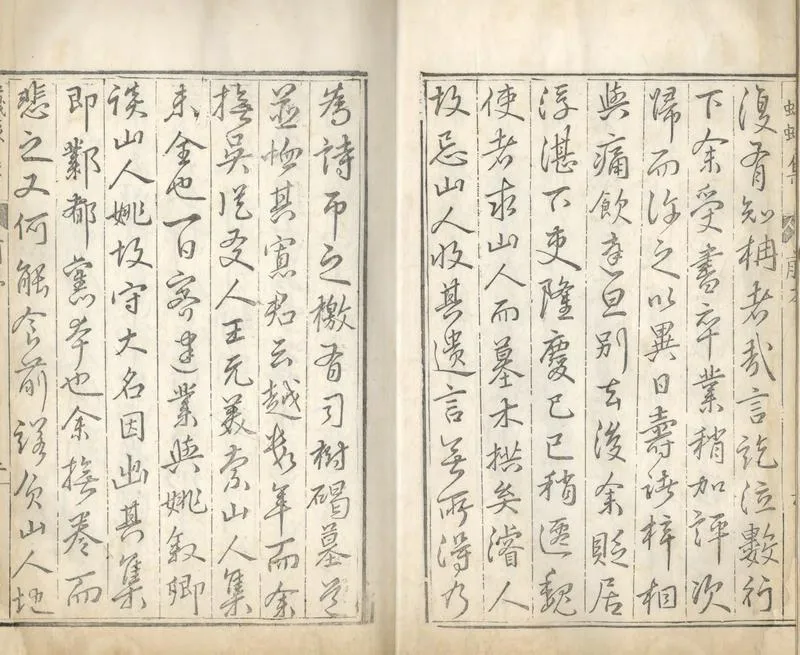 復有知柟者哉言訖泣數行
下余受書卒業稍加評次
歸而許之以異日壽諸梓相
與痛飲達旦別去後余貶居
浮湛下吏隆慶己巳稍遷魏
使者求山人而墓木拱矣濬人
故忌山人收其遺言無所得乃
為詩弔之檄有司樹碣墓道
並恤其寡云越數年而余
撫吳從友人王元美索山人集
未全也一日客建業與姚敘卿
談山人姚故守大名因出其集
即鄴都舊本也余撫卷而
悲之又何能食前諾負山人地